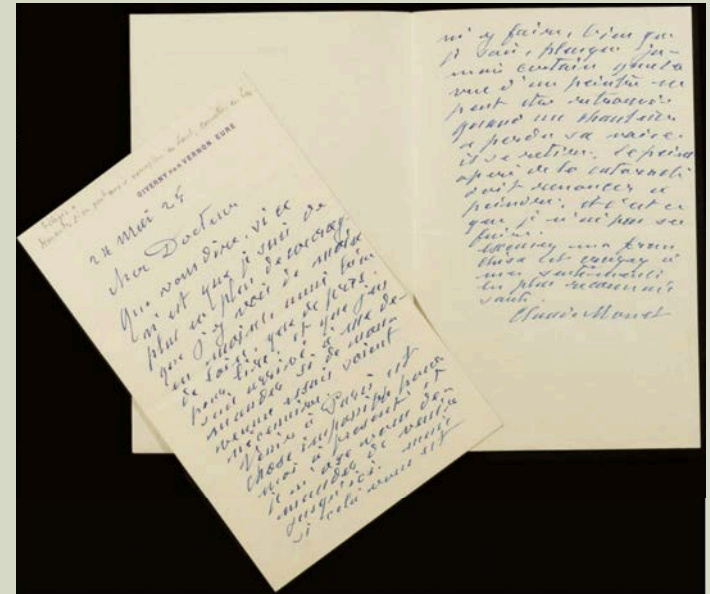 GIVERNY PAR VERNON. EURE
24 mai 25
cher Docteur
Que vous dire, si ce
n'est que je suis de
plus en plus découragé
que j'y vois de moins
en moins, aussi bien
de loin, que de près
pour lire, et que j'en
suis arrivé à me de-
mander si de nou-
veaux essais soient
nécessaires.
Venir à Paris est
chose impossible pour
moi à présent et
je n'ose vous de-
mander de venir
jusqu'ici. mais
si cela vous est
y faire, bien que
je sois, plus que ja-
mais certain que la
vue d'un peintre ne
peut être retrouvée
quand un chanteur
a perdu sa voix
il se retire, le peintre
opéré de la cataracte
doit renoncer à
peindre, et c'est ce
que je n'ai pas su
faire.
Excusez ma fran
chise et croyez à
mes sentiments
les plus reconnais
sants.
Claude Monet